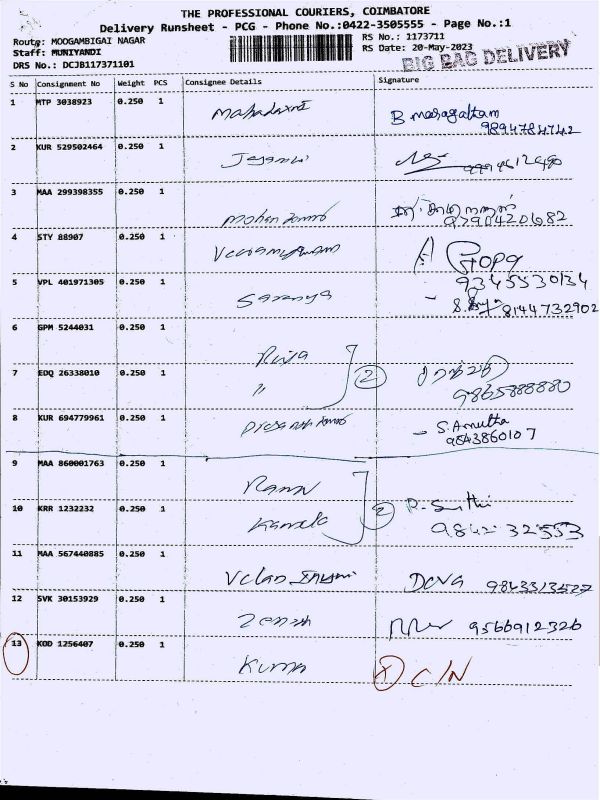 THE PROFESSIONAL COURIERS, COIMBATORE
Delivery Runsheet - PCG - Phone No.:0422-3505555 - Page No.:1
Route: MOOGAMBIGAI NAGAR
RS No.: 1173711
Staff: MUNIYANDI
RS Date: 20-May-2023
DRS No.: DCJB117371101
BIG BAG DELIVERY
S No Consignment No Weight PCS Consignee Details Signature
1 MTP 3038923 0.250 1
9894784742
2 KUR 529502464 0.250 1
3 MAA 299398355 0.250 1
9790420682
4 STY 88907 0.250 1 Gopa
9345530134
5 VPL 401971305 0.250 1 Saranya
8144732902
6 GPM 5244031 0.250 1
7 EDQ 26338010 0.250 1 〃 2
9865888880
8 KUR 694779961 0.250 1 - S. Amutha
9843860107
9 MAA 860001763 0.250 1 Ramu
10 KRR 1232232 0.250 1 Kamala 2
984232553
11 MAA 567440885 0.250 1 Deva
12 SVK 30153929 0.250 1 9566912326
13 KOD 1256407 0.250 1 Kuma X C/N